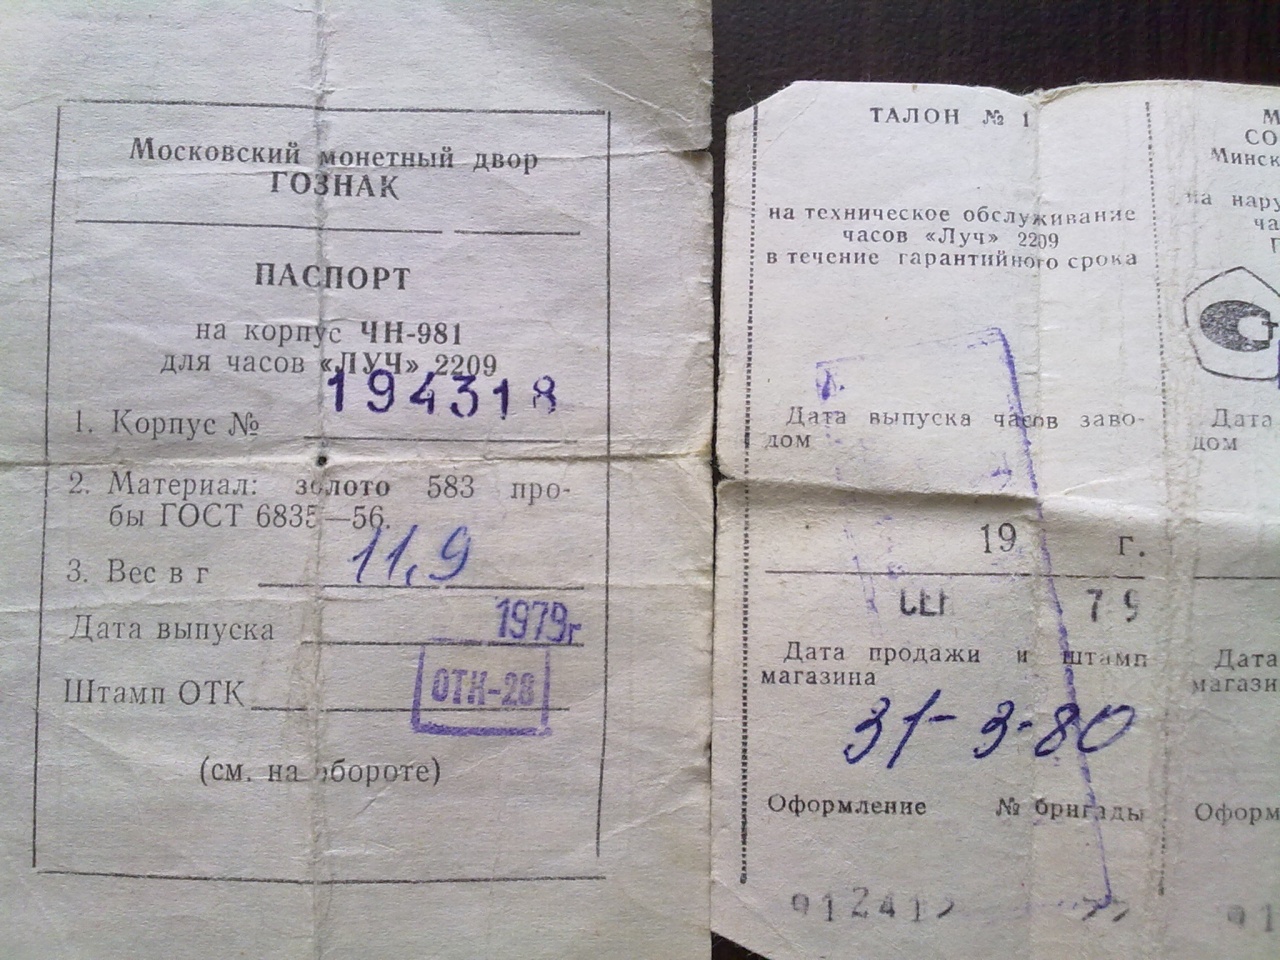 Московский монетный двор
ГОЗНАК
ПАСПОРТ
на корпус ЧН-981
для часов «ЛУЧ» 2209
194318
1. Корпус №
2. Материал: золото 583 про-
бы ГОСТ 6835—56.
3. Вес в г 11,9
Дата выпуска 1979г
Штамп ОТК ОТК-28
(см. на обороте)
ТАЛОН № 1
на техническое обслуживание
часов «Луч» 2209
в течение гарантийного срока
Дата выпуска часов заво-
дом
19 г.
79
Дата продажи и штамп
магазина
31-3-80
Оформление № бригады
Минск
на
Дата
дом
Дата